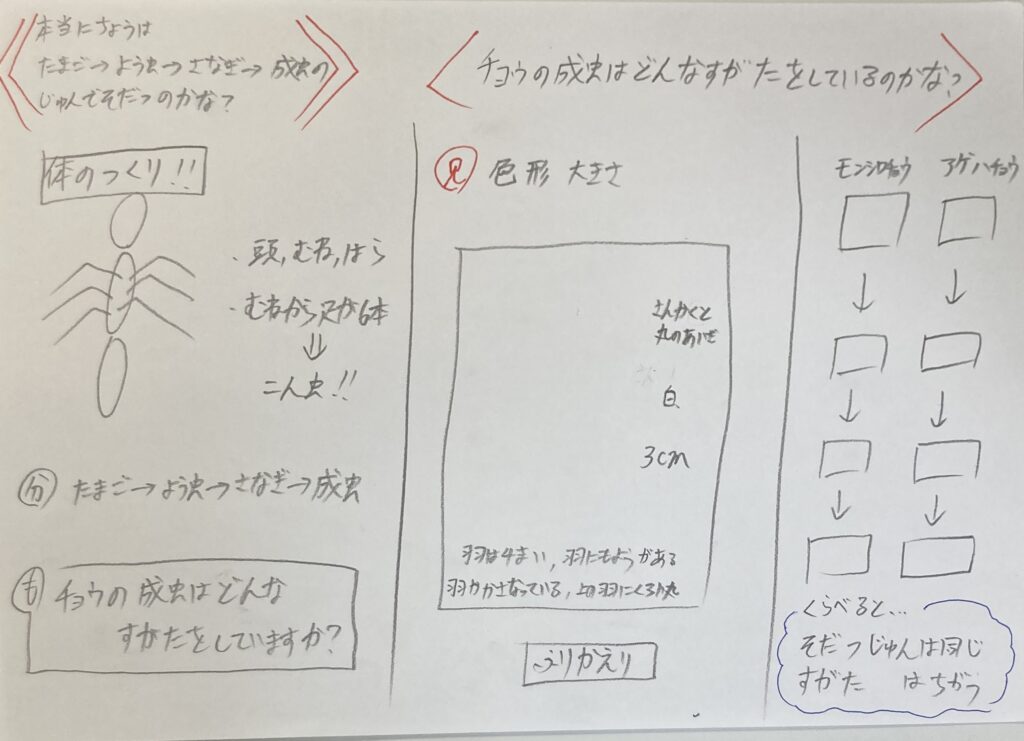 本当にちょうは
たまご→よう虫→さなぎ→成虫の
じゅんでそだつのかな?
体のつくり!!
・頭,むね,はら
・むねから足が6本
⇓
こん虫!!
分 たまご→よう虫→さなぎ→成虫
も チョウの成虫はどんな
すがたをしていますか?
チョウの成虫はどんなすがたをしているのかな?
見 色 形 大きさ
さんかくと
丸のあいだ
白
3cm
羽は4まい,羽にもようがある
羽がかさなっている,上の羽にくろ丸
ふりかえり
モンシロチョウ アゲハチョウ
↓ ↓
↓ ↓
↓ ↓
くらべると…
そだつじゅんは同じ
すがた はちがう